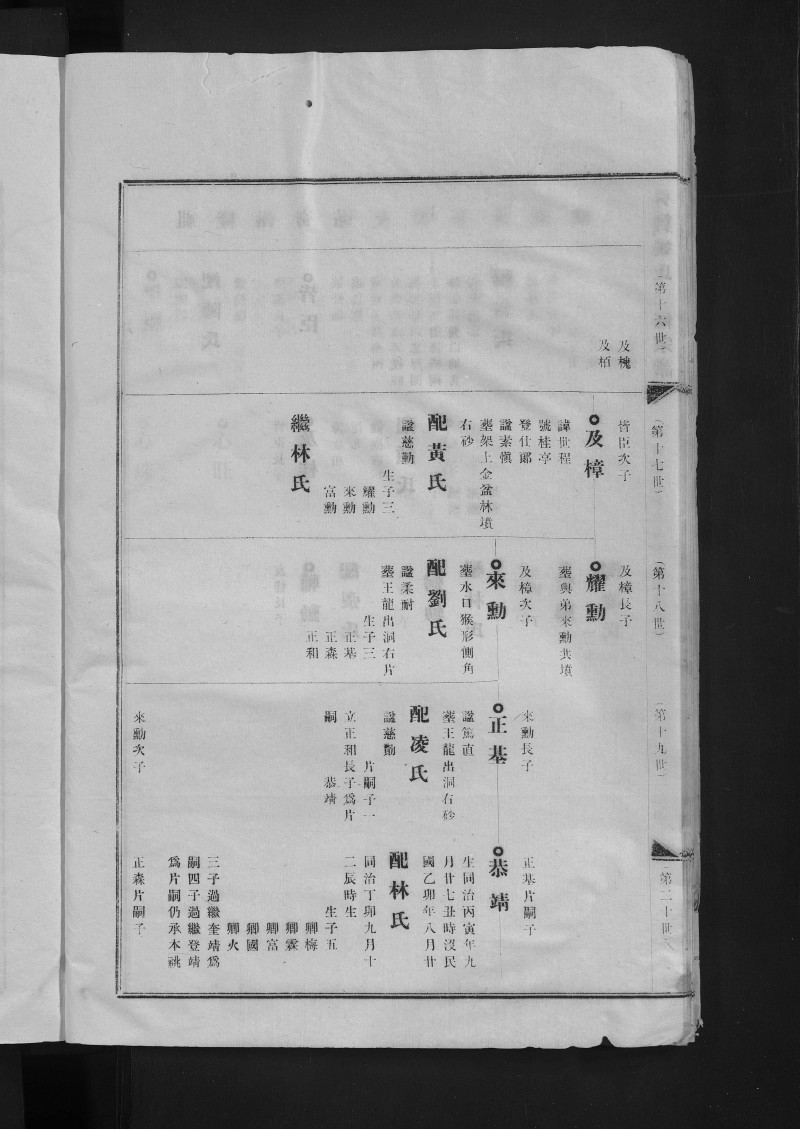 (第十六世)
及槐
及栢
(第十七世)
皆臣次子
及樟
諱世程
號桂亭
登仕郎
諡素愼
塟架上金盆林墳
右砂
配黃氏
諡慈勤
生子三
耀勳
來勳
富勳
繼林氏
(第十八世)
及樟長子
耀勳
塟與弟來勳共墳
及樟次子
來勳
塟水口猴形側角
配劉氏
諡柔耐
塟王龍出洞右片
生子三
正基
正森
正和
(第十九世)
來勳長子
正基
諡篤直
塟王龍出洞右砂
配凌氏
諡慈勤
片嗣子一
立正和長子爲片
嗣 恭靖
來勳次子
(第二十世)
正基片嗣子
恭靖
生同治丙寅年九
月廿七丑時沒民
國乙卯年八月廿
配林氏
同治丁卯九月十
二辰時生
生子五
卿梅
卿霖
卿富
卿國
卿火
三子過繼奎靖爲
嗣四子過繼登靖
爲片嗣仍承本祧
正森片嗣子